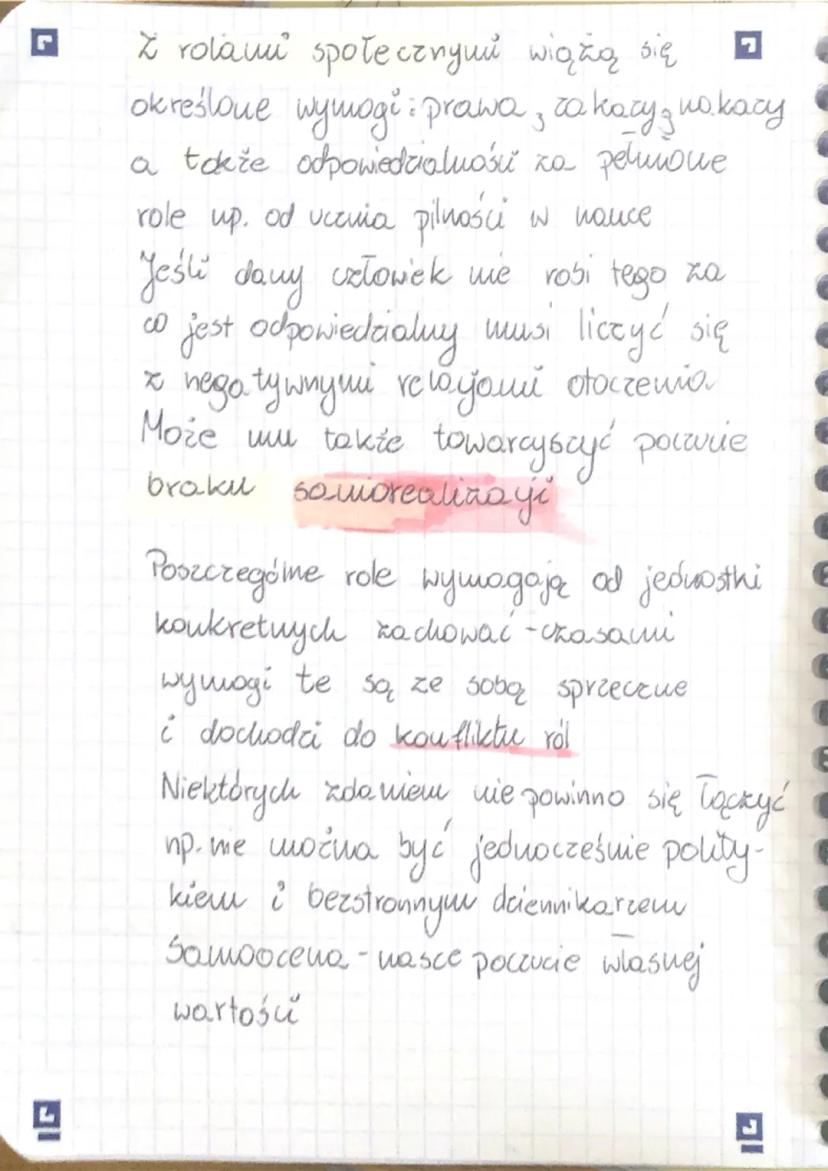 Z rolami społecznymi wiążą się
określone wymogi: prawa, zakazy, nakazy
a także odpowiedzialności za pełnione
role np. od ucznia pilności w nauce
Jeśli dany człowiek nie robi tego za
co jest odpowiedzialny musi liczyć się
z negatywnymi relacjami otoczenia
Może mu także towarzyszyć poczucie
braku samorealizacji
Poszczególne role wymagają od jednostki
konkretnych zachować - czasami
wymogi te są ze sobą sprzeczne
i dochodzi do konfliktu ról
Niektórych zdaniem nie powinno się łączyć
np. nie można być jednocześnie polity-
kiem i bezstronnym dziennikarzem
Samoocena - nasze poczucie własnej
wartości